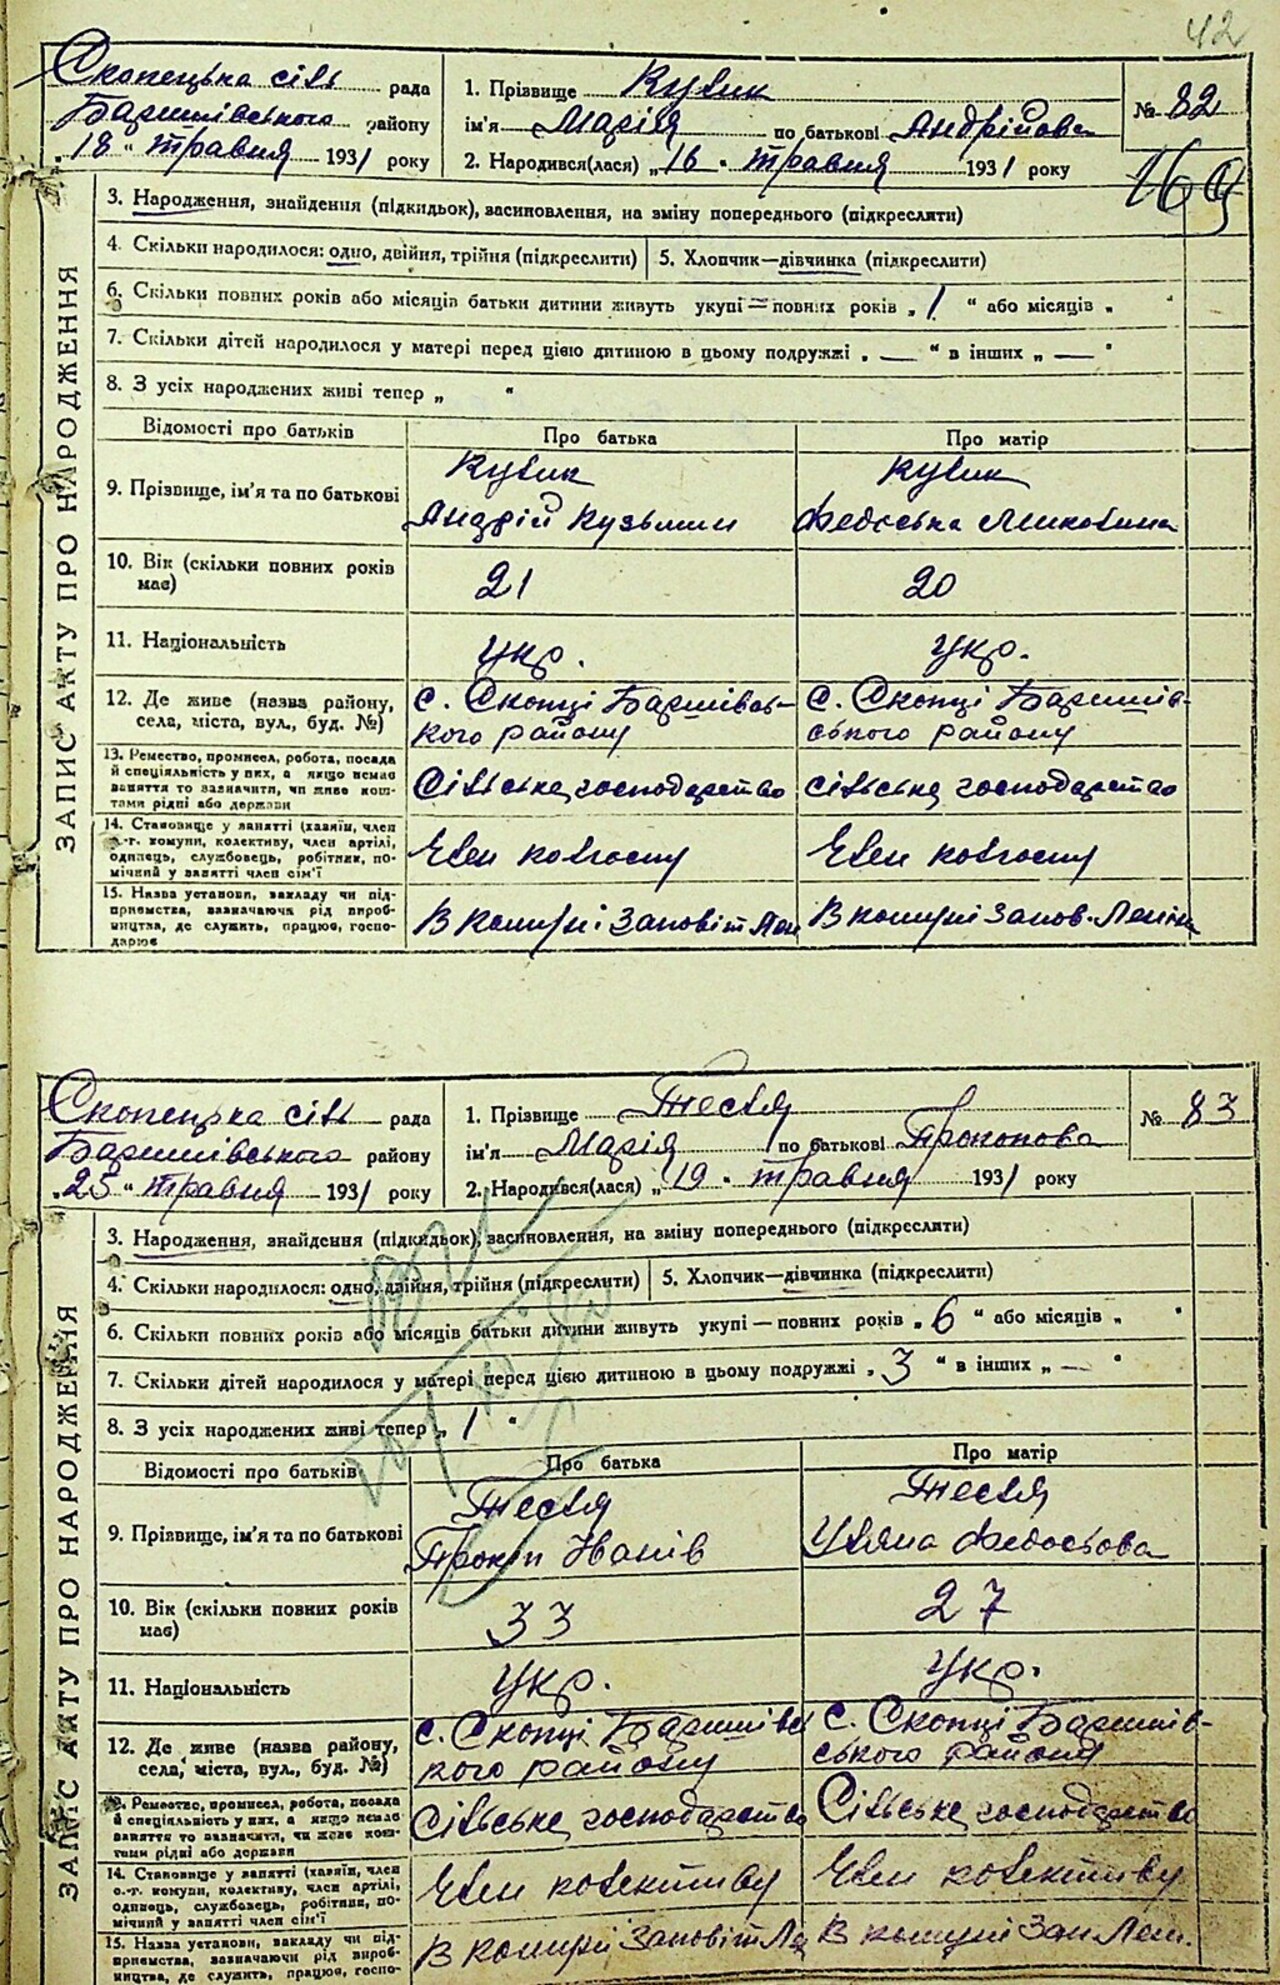 42
Скопецька сіль рада
Баришівського району
"18" травня 1931 року
1. Прізвище Кулик
ім'я Марія по батькові Андрійова
2. Народився(лася) „16" травня 1931 року
№ 82
ЗАПИС АКТУ ПРО НАРОДЖЕННЯ
3. Народження, знайдення (підкидьок), засиновлення, на зміну попереднього (підкреслити)
4. Скільки народилося: одно, двійня, трійня (підкреслити)
5. Хлопчик—дівчинка (підкреслити)
6. Скільки повних років або місяців батьки дитини живуть укупі — повних років „1" або місяців „ "
7. Скільки дітей народилося у матері перед цією дитиною в цьому подружжі „—" в інших „—"
8. З усіх народжених живі тепер „ "
Відомості про батьків
Про батька
Про матір
9. Прізвище, ім'я та по батькові
Кулик
Андрій Кузьмин
Кулик
Федоська
10. Вік (скільки повних років
має)
21
20
11. Національність
укр.
укр.
12. Де живе (назва району,
села, міста, вул., буд. №)
с. Скопці Баришівсь-
кого району
с. Скопці Баришів-
ського району
13. Ремество, промисел, робота, посада
й спеціяльність у них, а якщо немає
заняття то зазначити, чи живе кош-
тами рідні або держави
Сільське господарство
сільське господарство
14. Становище у занятті (хазяїн, член
с.-г. комуни, колективу, член артілі,
одинець, службовець, робітник, по-
мічний у занятті член сім'ї
Член колгоспу
Член колгоспу
15. Назва установи, закладу чи під-
приємства, зазначаючи рід вироб-
ництва, де служить, працює, госпо-
дарює
В комуні Заповіт Лен
В комуні Запов. Леніна
Скопецька сіль рада
Баришівського району
"25" травня 1931 року
1. Прізвище Тесля
ім'я Марія по батькові Прокопова
2. Народився(лася) „19" травня 1931 року
№ 83
ЗАПИС АКТУ ПРО НАРОДЖЕННЯ
3. Народження, знайдення (підкидьок), засиновлення, на зміну попереднього (підкреслити)
4. Скільки народилося: одно, двійня, трійня (підкреслити)
5. Хлопчик—дівчинка (підкреслити)
6. Скільки повних років або місяців батьки дитини живуть укупі — повних років „6" або місяців „ "
7. Скільки дітей народилося у матері перед цією дитиною в цьому подружжі „3" в інших „—"
8. З усіх народжених живі тепер „1"
Відомості про батьків
Про батька
Про матір
9. Прізвище, ім'я та по батькові
Тесля
Прокіп Іванів
Тесля
Уляна Федосьова
10. Вік (скільки повних років
має)
33
27
11. Національність
укр.
укр.
12. Де живе (назва району,
села, міста, вул., буд. №)
с. Скопці Баришівсь
кого району
с. Скопці Баришів-
ського району
13. Ремество, промисел, робота, посада
й спеціяльність у них, а якщо немає
заняття то зазначити, чи живе кош-
тами рідні або держави
Сільське господарство
Сільське господарство
14. Становище у занятті (хазяїн, член
с.-г. комуни, колективу, член артілі,
одинець, службовець, робітник, по-
мічний у занятті член сім'ї
Член колективу
Член колективу
15. Назва установи, закладу чи під-
приємства, зазначаючи рід вироб-
ництва, де служить, працює, госпо-
В комуні Заповіт Ле
В комуні Зап Лен.